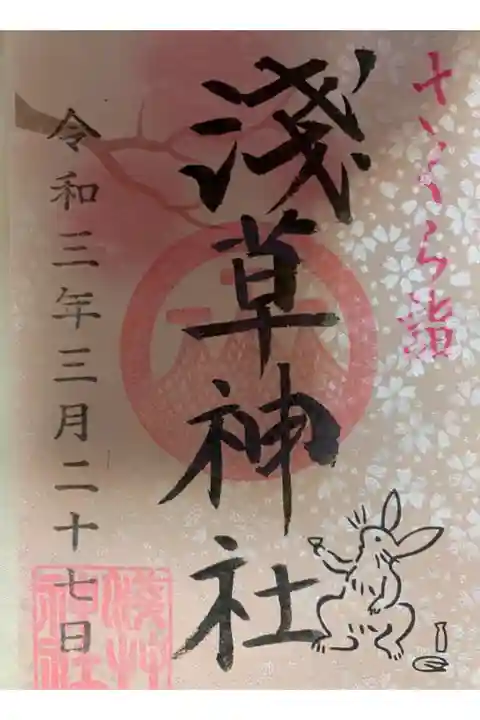 さくら詣
淺草神社
令和三年三月二十七日